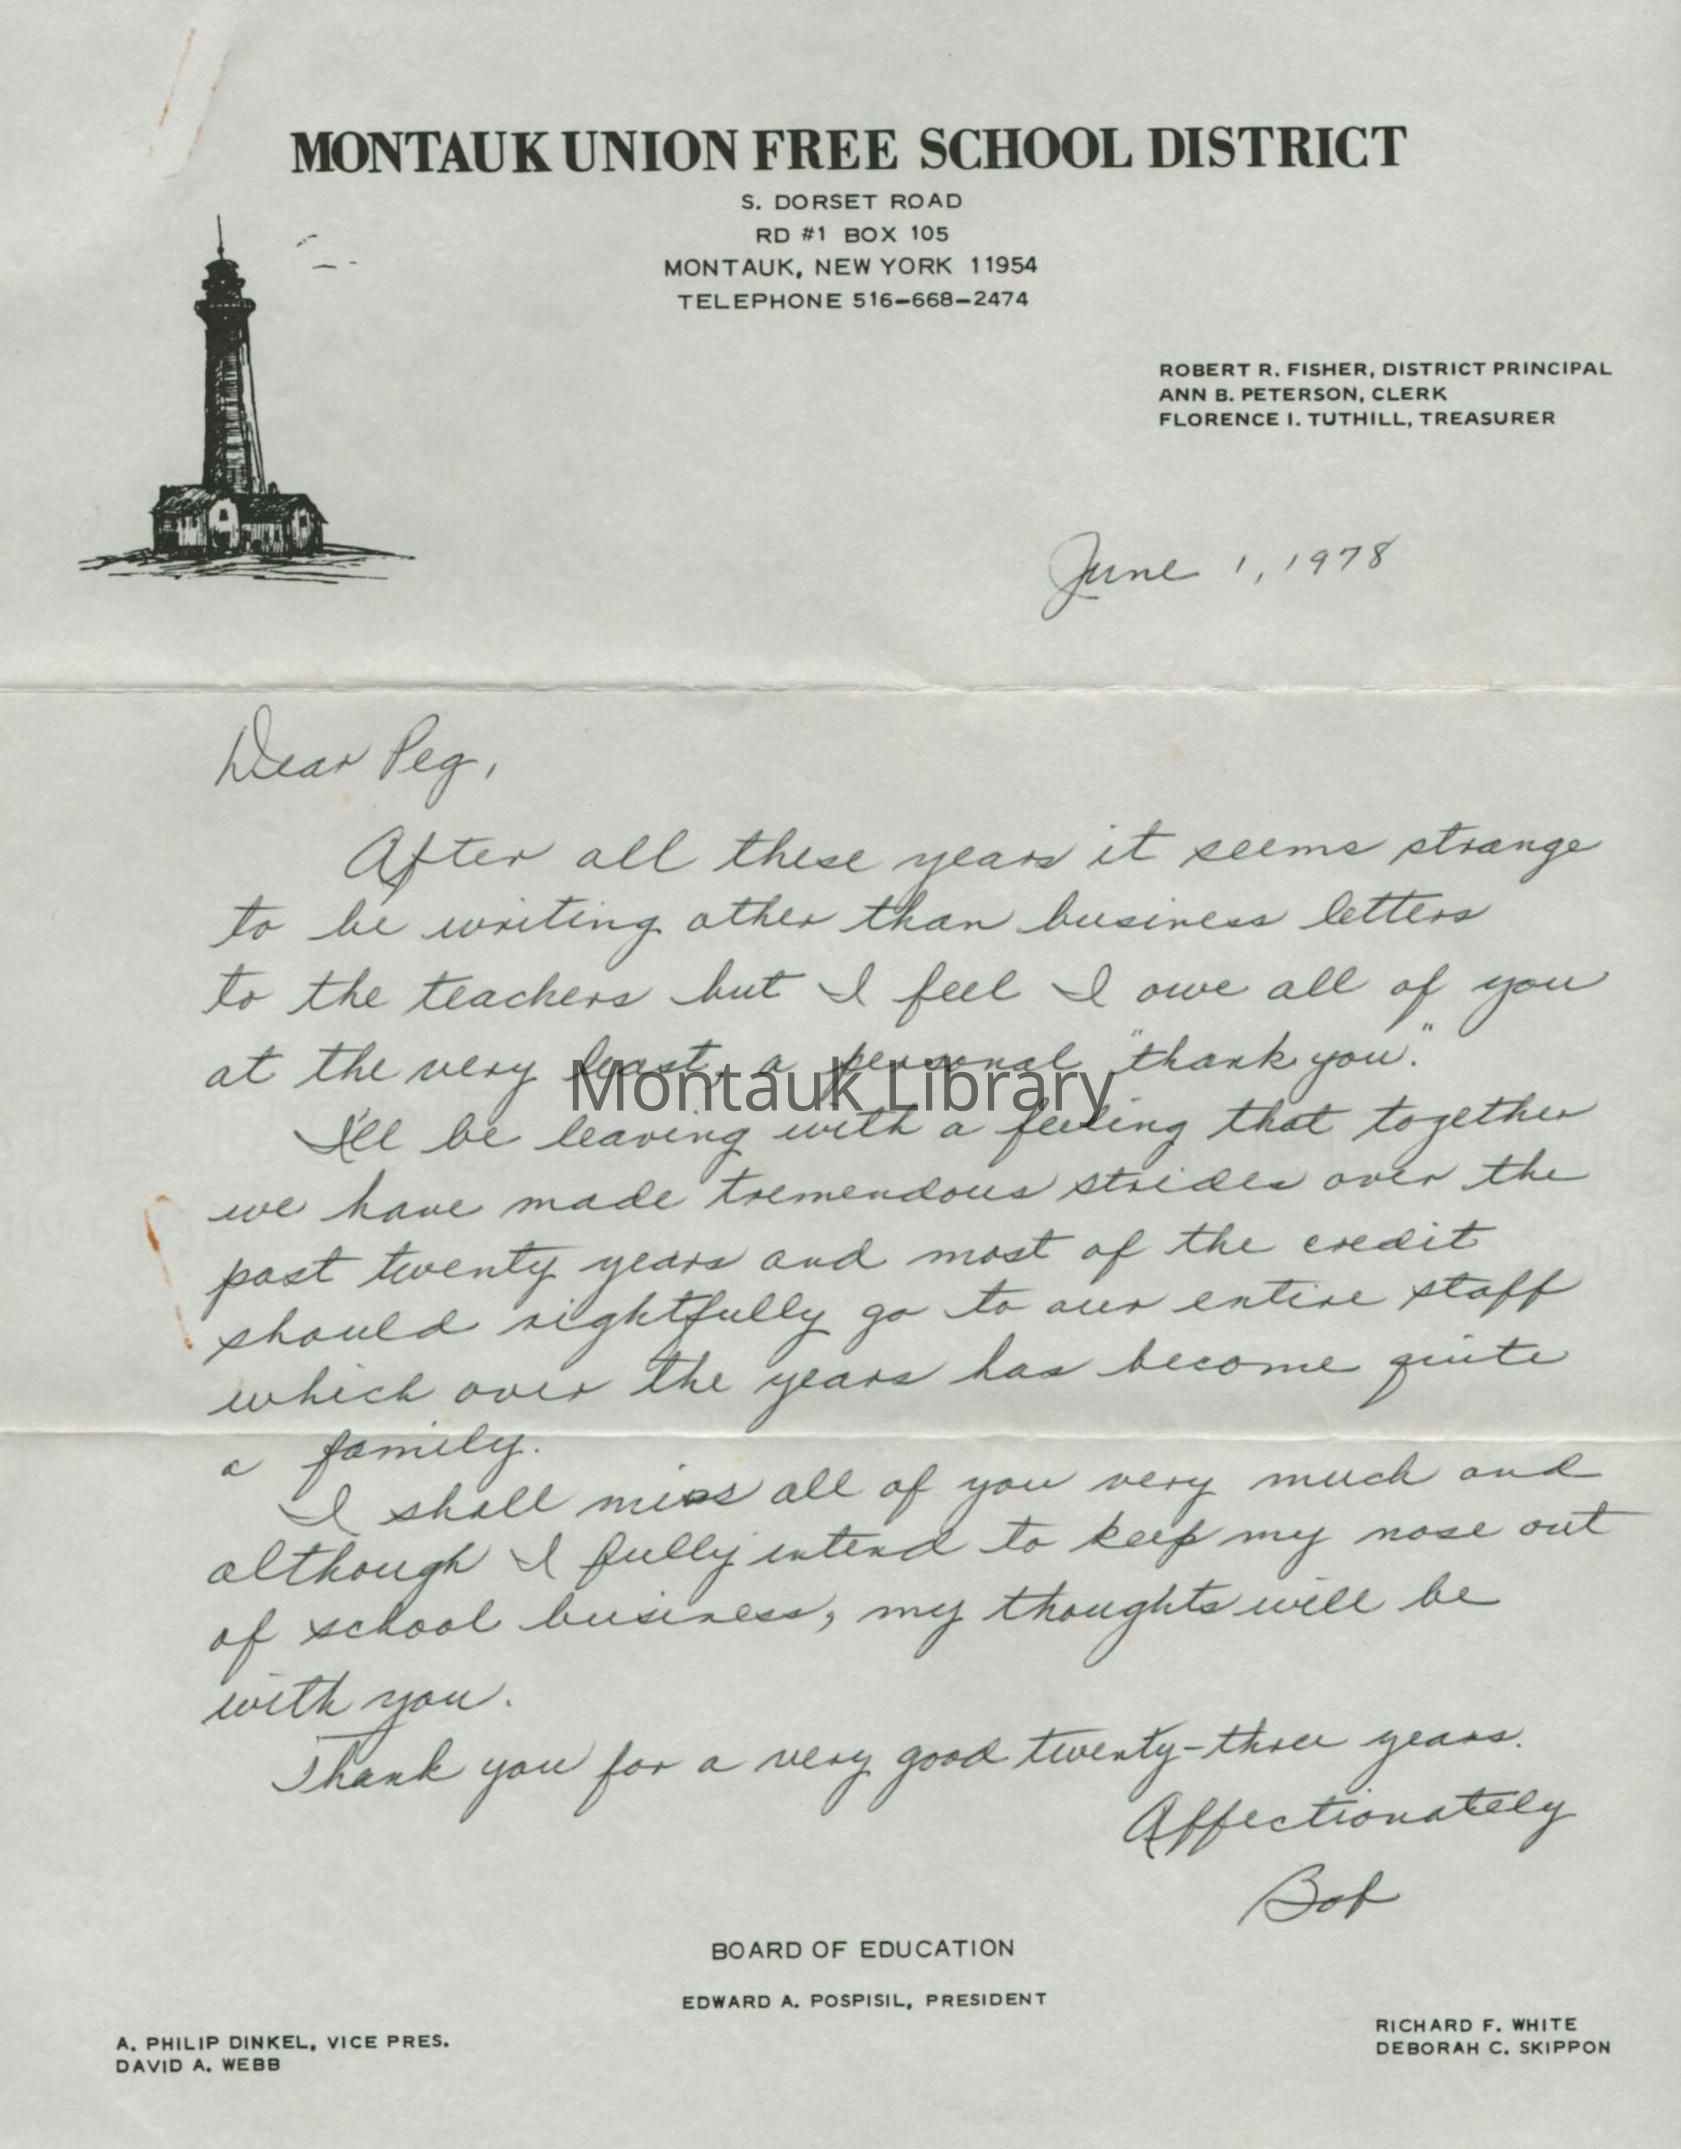 MONTAUK UNION FREE SCHOOL DISTRICT
S. DORSET ROAD
RD #1 BOX 105
MONTAUK, NEW YORK 11954
TELEPHONE 516-668-2474
ROBERT R. FISHER, DISTRICT PRINCIPAL
ANN B. PETERSON, CLERK
FLORENCE I. TUTHILL, TREASURER
June 1, 1978
Dear Peg,
After all these years it seems strange
to be writing other than business letters
to the teachers but I feel I owe all of you
at the very least, a personal "thank you."
Montauk Library
I'll be leaving with a feeling that together
we have made tremendous strides over the
past twenty years and most of the credit
should rightfully go to our entire staff
which over the years has become quite
a family.
I shall miss all of you very much and
although I fully intend to keep my nose out
of school business, my thoughts will be
with you.
Thank you for a very good twenty-three years.
Affectionately
Bob
BOARD OF EDUCATION
EDWARD A. POSPISIL, PRESIDENT
A. PHILIP DINKEL, VICE PRES.
DAVID A. WEBB
RICHARD F. WHITE
DEBORAH C. SKIPPON